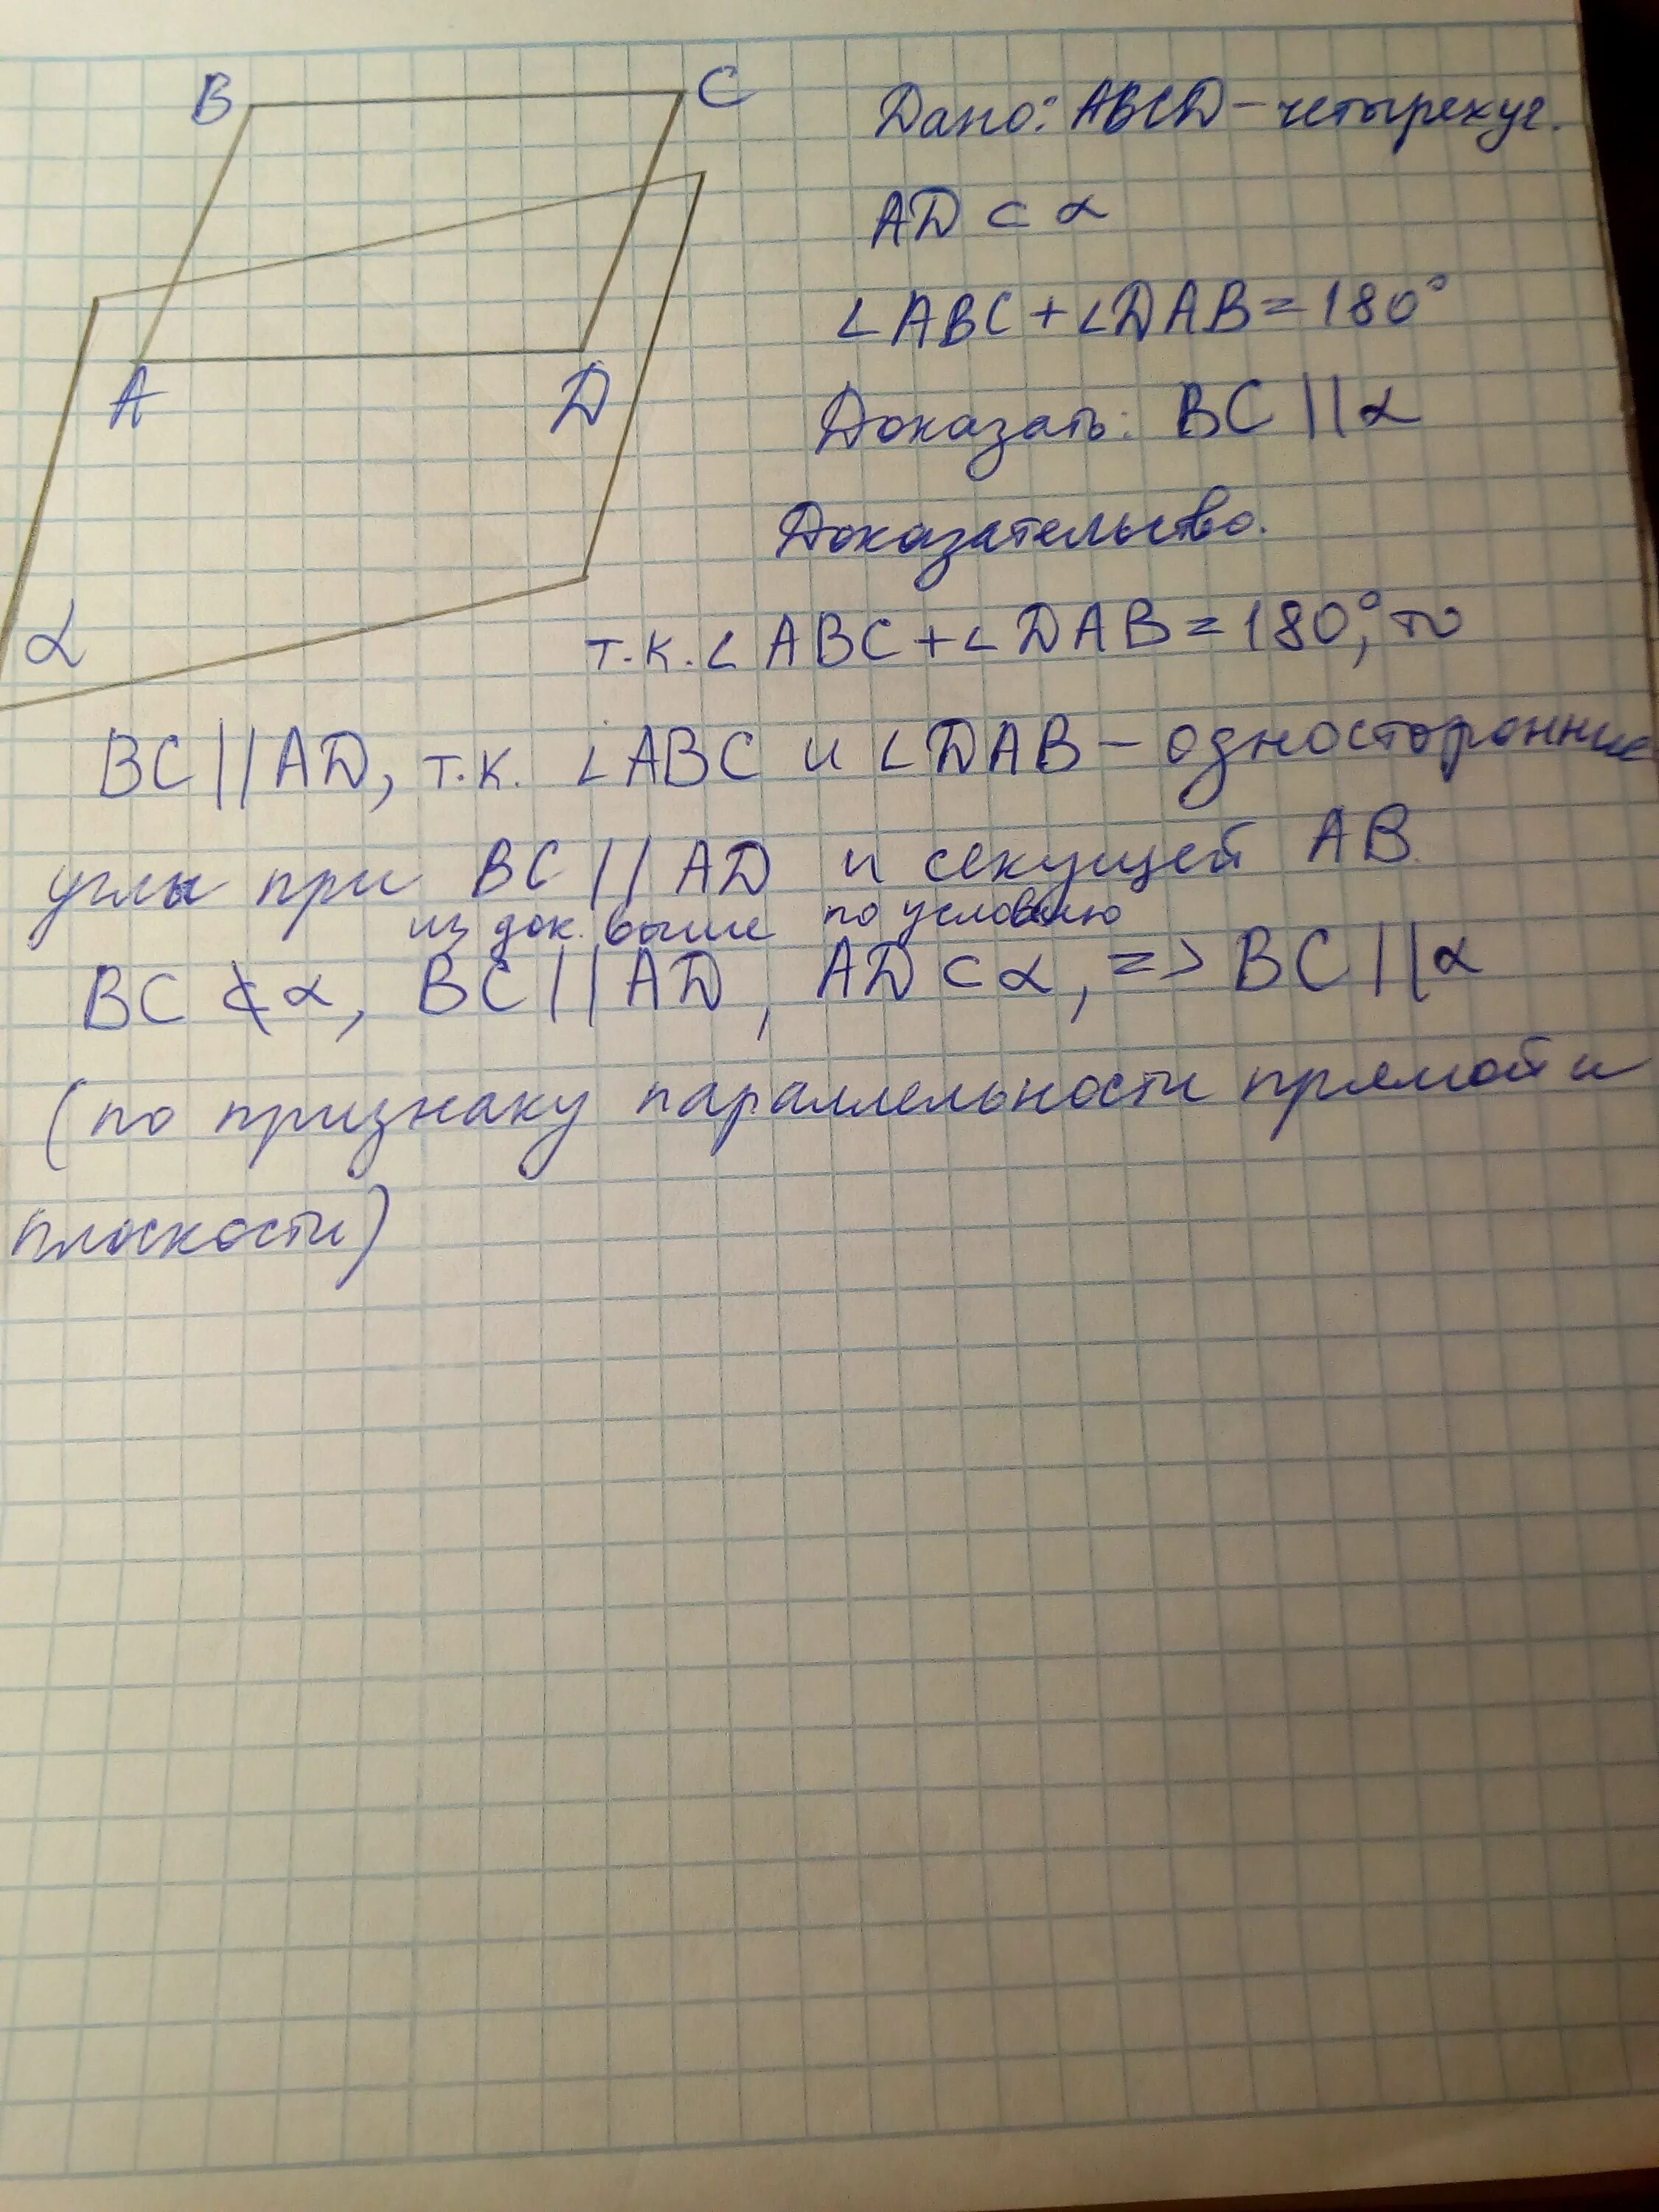 B C
A D
α
Дано: ABCD – четырехуг.
AD ⊂ α
∠ABC + ∠DAB = 180°
Доказать: BC || α
Доказательство.
т.к. ∠ABC + ∠DAB = 180°, то
BC || AD, т.к. ∠ABC и ∠DAB – односторонние
углы при BC || AD и секущей AB.
из док. выше по условию
BC ⊄ α, BC || AD, AD ⊂ α, => BC || α
(по признаку параллельности прямой и
плоскости)